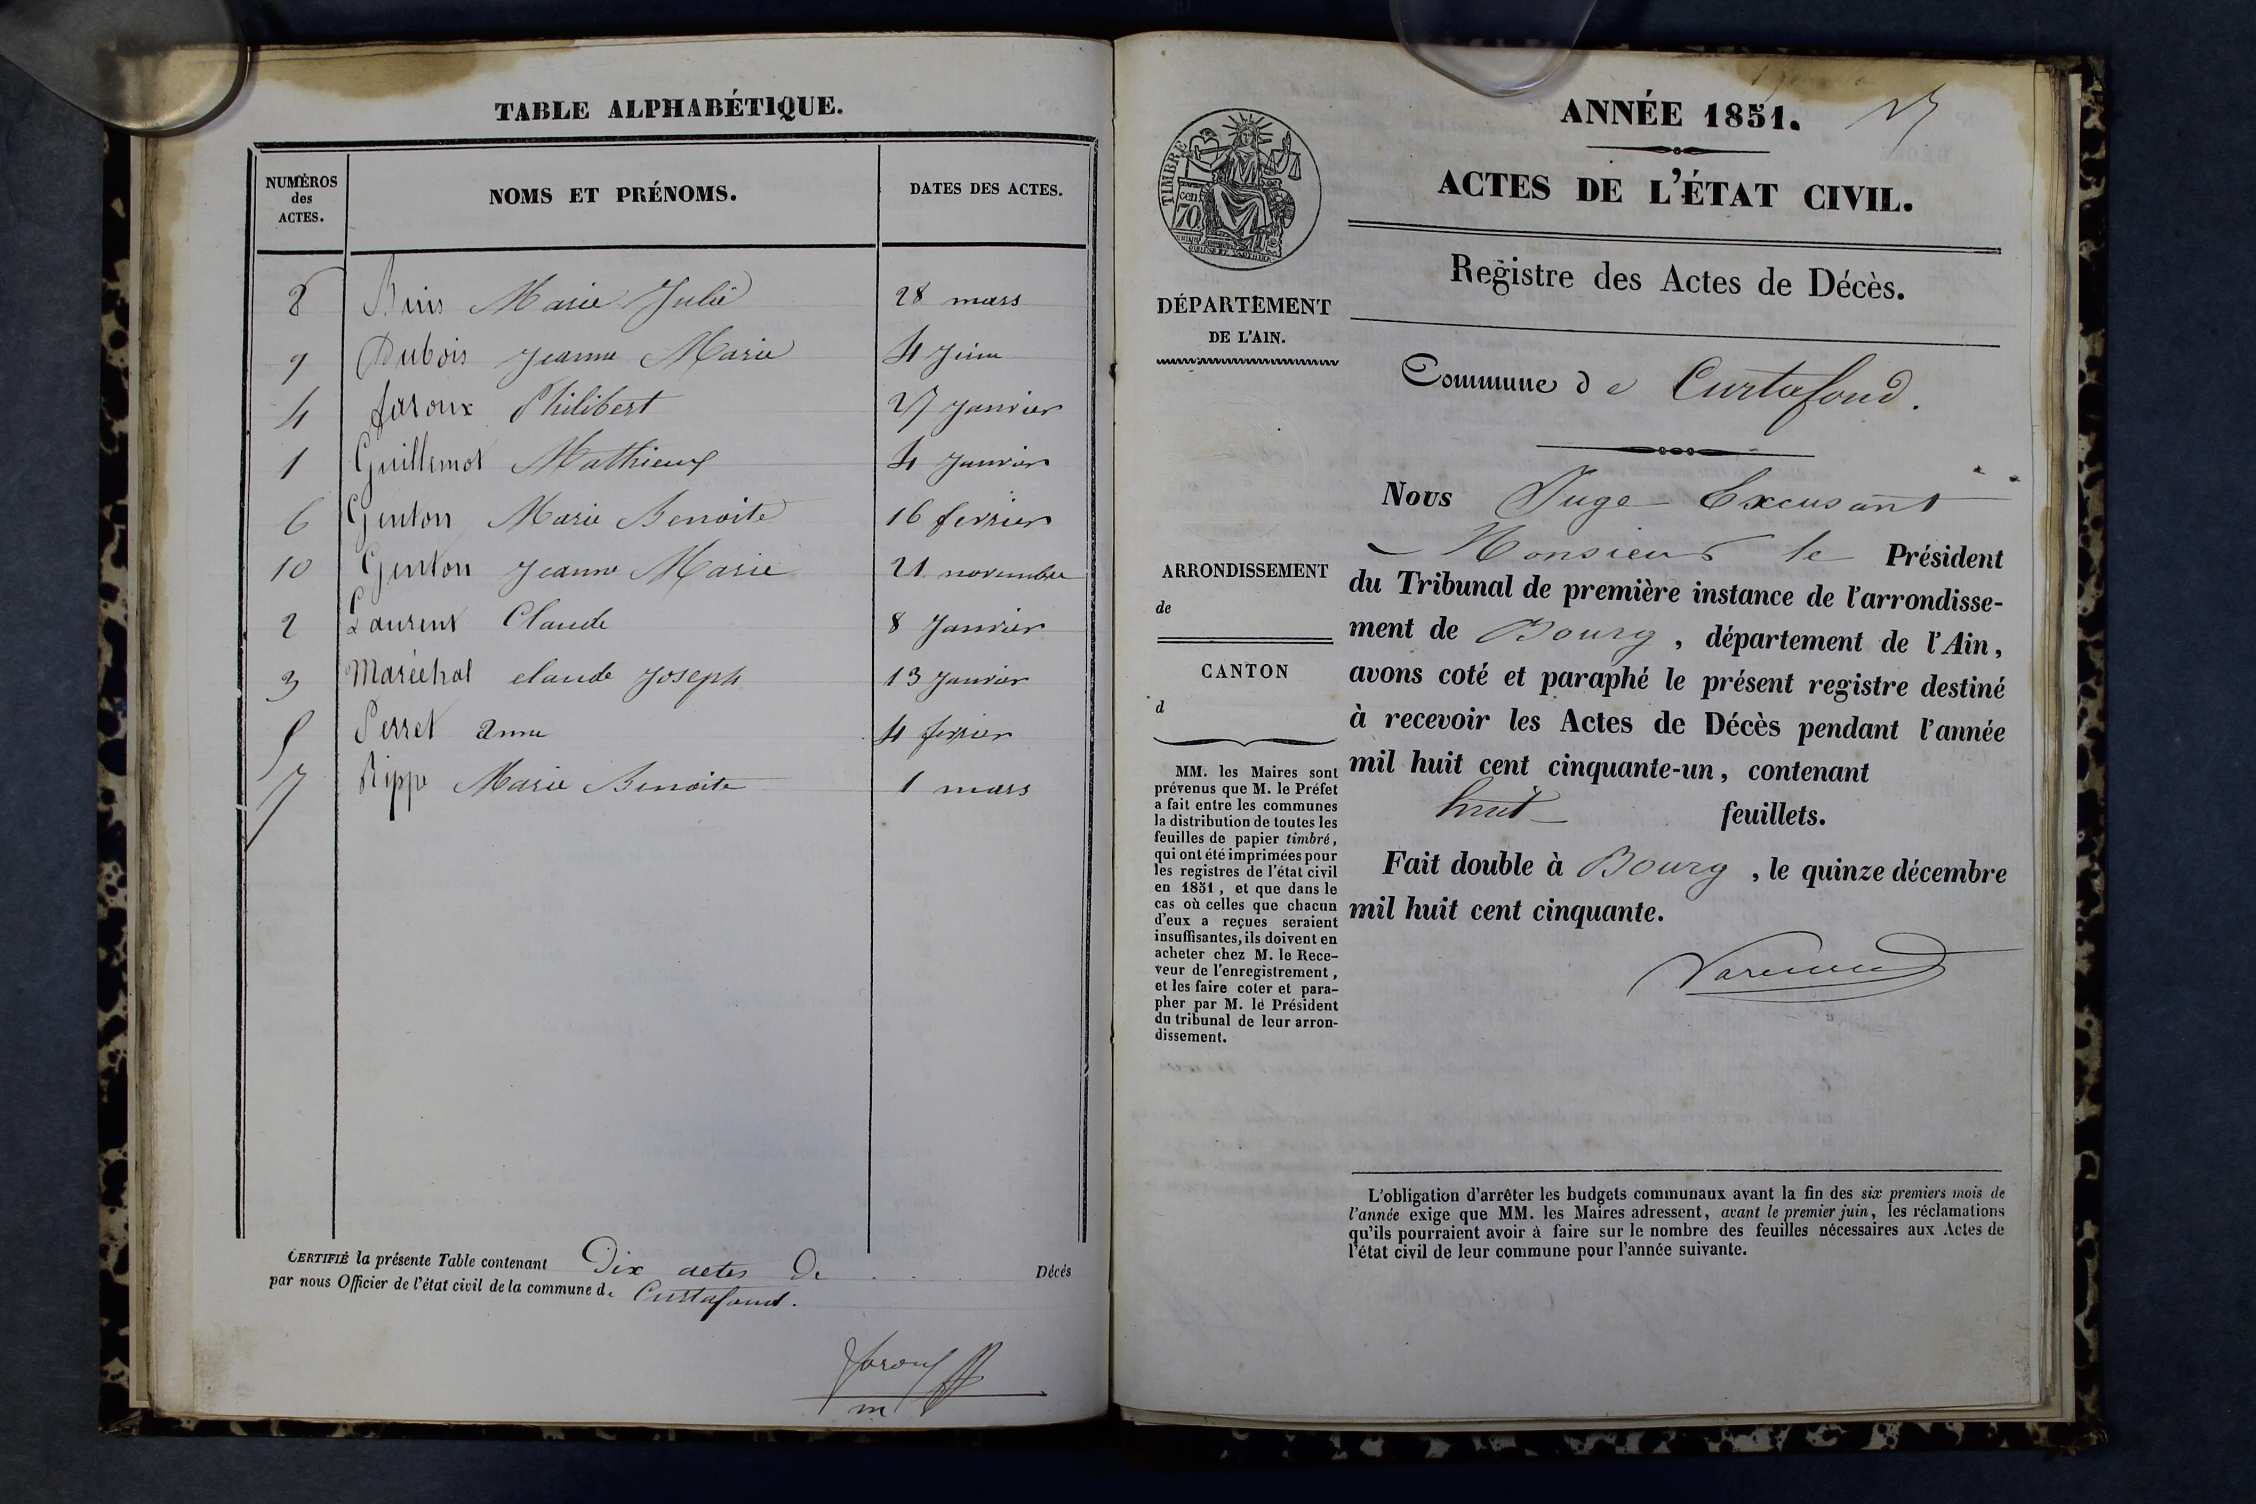 TABLE ALPHABÉTIQUE.
NUMÉROS
des
ACTES.
NOMS ET PRÉNOMS.
DATES DES ACTES.
8 Marie Julie 28 mars
9 Dubois Jeanne Marie 4 Juin
4 faroux Philibert 27 Janvier
1 Guillemot Mathieux 4 Janvier
6 Genton Marie Benoite 16 fevrier
10 Genton Jeanne Marie 21 novembre
2 Laurent Claude 8 Janvier
3 Maréchal claude Joseph 13 Janvier
5 Perret anne 4 fevrier
7 Rippe Marie Benoite 1 mars
CERTIFIÉ la présente Table contenant Dix actes de Décés
par nous Officier de l'état civil de la commune de Curtafond.
faroux
m
ANNÉE 1851.
ACTES DE L'ÉTAT CIVIL.
TIMBRE
cen.
70
Registre des Actes de Décès.
DÉPARTEMENT
DE L'AIN.
Commune de Curtafond.
Nous Juge Excusant
Monsieur le Président
du Tribunal de première instance de l'arrondisse-
ment de Bourg, département de l'Ain,
avons coté et paraphé le présent registre destiné
à recevoir les Actes de Décès pendant l'année
mil huit cent cinquante-un, contenant
huit feuillets.
Fait double à Bourg, le quinze décembre
mil huit cent cinquante.
ARRONDISSEMENT
de
CANTON
d
MM. les Maires sont
prévenus que M. le Préfet
a fait entre les communes
la distribution de toutes les
feuilles de papier timbré,
qui ont été imprimées pour
les registres de l'état civil
en 1851, et que dans le
cas où celles que chacun
d'eux a reçues seraient
insuffisantes, ils doivent en
acheter chez M. le Rece-
veur de l'enregistrement,
et les faire coter et para-
pher par M. le Président
du tribunal de leur arron-
dissement.
L'obligation d'arrêter les budgets communaux avant la fin des six premiers mois de
l'année exige que MM. les Maires adressent, avant le premier juin, les réclamations
qu'ils pourraient avoir à faire sur le nombre des feuilles nécessaires aux Actes de
l'état civil de leur commune pour l'année suivante.